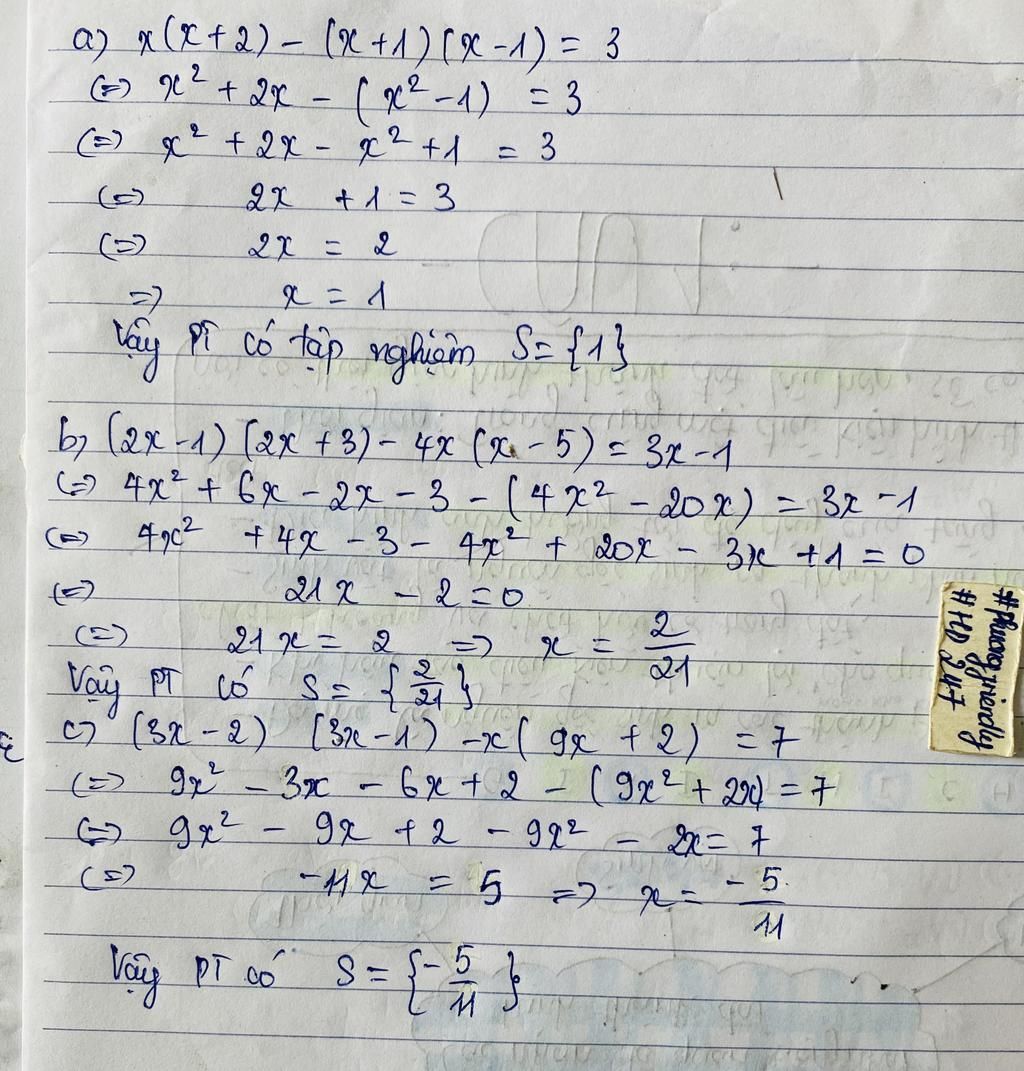 a) x(x+2) - (x+1)(x-1) = 3
(=) x² + 2x - (x² - 1) = 3
(=) x² + 2x - x² + 1 = 3
(=) 2x + 1 = 3
(=) 2x = 2
=) x = 1
Vậy PT có tập nghiệm S = {1}
b) (2x - 1) (2x + 3) - 4x (x - 5) = 3x - 1
(=) 4x² + 6x - 2x - 3 - (4x² - 20x) = 3x - 1
(=) 4x² + 4x - 3 - 4x² + 20x - 3x + 1 = 0
(=) 21x - 2 = 0
(=) 21x = 2 =) x = 2/21
Vậy PT có S = {2/21}
c) (3x - 2) (3x - 1) - x(9x + 2) = 7
(=) 9x² - 3x - 6x + 2 - (9x² + 2x) = 7
(=) 9x² - 9x + 2 - 9x² - 2x = 7
(=) -11x = 5 =) x = -5/11
Vậy PT có S = {-5/11}
#HD247